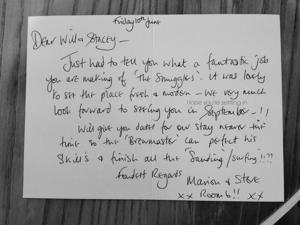 Friday 10th June
Dear Will & Stacey —
Just had to tell you what a fantastic job
you are making of 'The Smugglers'. it was lovely
to see the place fresh & modern — we very much
Hope you're settling in
look forward to seeing you in September — !!
Will give you dates for our stay nearer the
time so the 'Brewmaster' can perfect his
skills & finish all the 'Sanding'/surfing!!??
Fondest Regards
Marion & Steve
xx Room 6!! xx